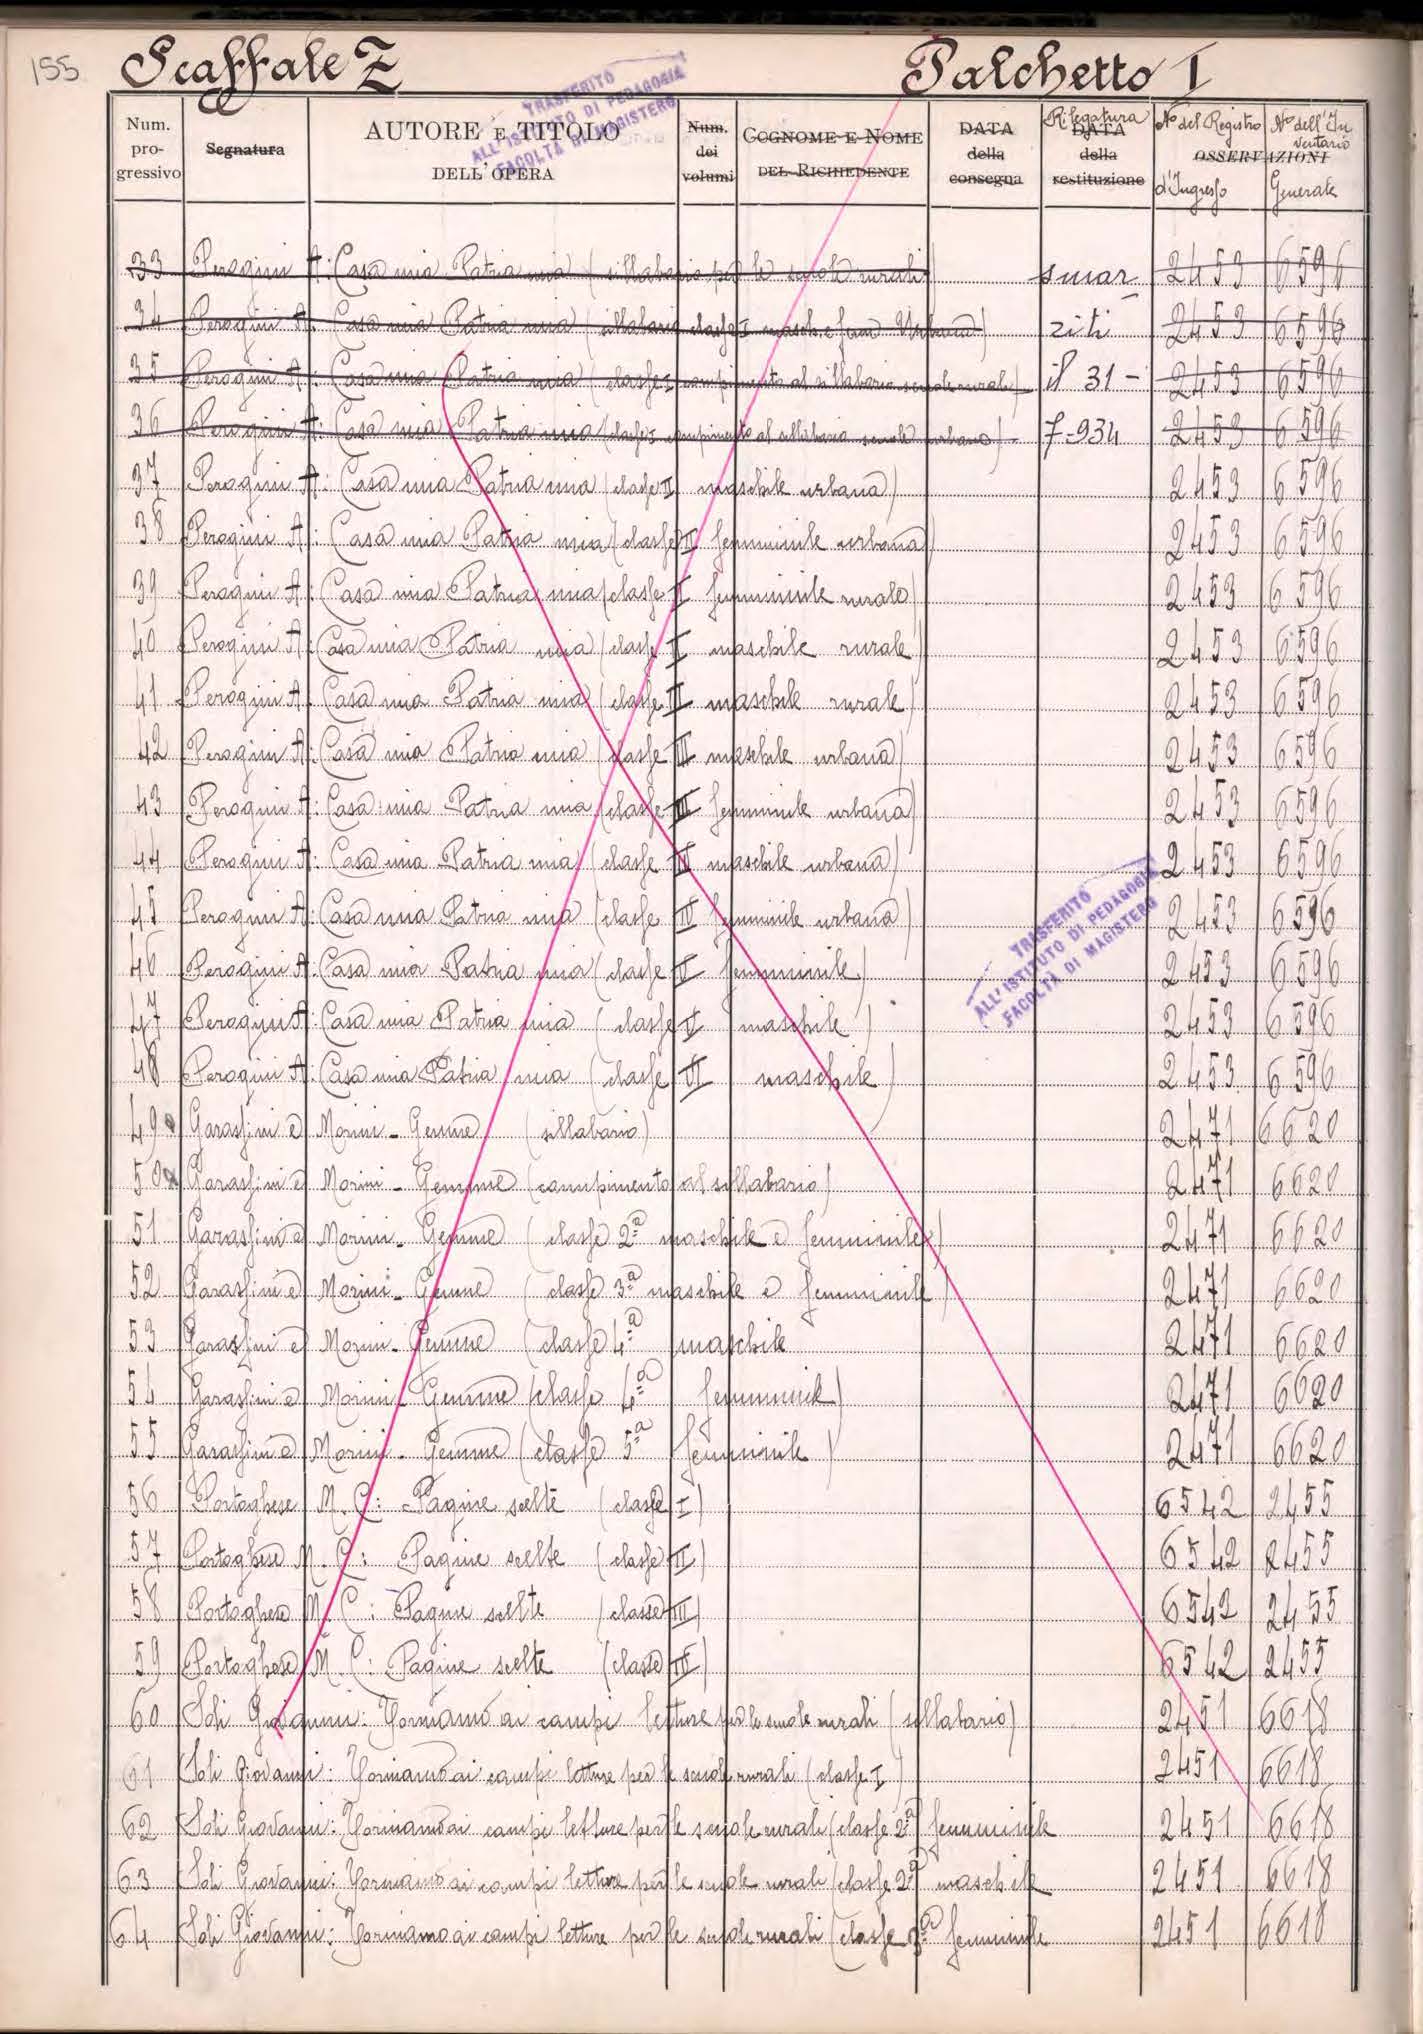 155 Scaffale Z Palchetto I
TRASFERITO
ALL'ISTITUTO DI PEDAGOGIA
FACOLTÀ DI MAGISTERO
Num. progressivo Segnatura AUTORE E TITOLO DELL'OPERA Num. dei volumi COGNOME E NOME DEL RICHIEDENTE DATA della consegna Rilegatura DATA della restituzione OSSERVAZIONI No del Registro d'Ingresso No dell'Inventario Generale
33 Perogini A: Casa mia Patria mia (sillabario per le scuole rurali) smar 2453 6596
34 Perogini A: Casa mia Patria mia (sillabario classe I masch. e fem Urbana) ziti 2453 6596
35 Perogini A: Casa mia Patria mia (classe I compimento al sillabario scuole rurale) il 31- 2453 6596
36 Perogini A: Casa mia Patria mia (classe I compimento al sillabario scuole urbane) 7-934 2453 6596
37 Perogini A: Casa mia Patria mia (classe II maschile urbana) 2453 6596
38 Perogini A: Casa mia Patria mia (classe II femminile urbana) 2453 6596
39 Perogini A: Casa mia Patria mia (classe II femminile rurale) 2453 6596
40 Perogini A: Casa mia Patria mia (classe II maschile rurale) 2453 6596
41 Perogini A: Casa mia Patria mia (classe II maschile rurale) 2453 6596
42 Perogini A: Casa mia Patria mia (classe III maschile urbana) 2453 6596
43 Perogini A: Casa mia Patria mia (classe III femminile urbana) 2453 6596
44 Perogini A: Casa mia Patria mia (classe maschile urbana) 2453 6596
45 Perogini A: Casa mia Patria mia (classe IV femminile urbana) 2453 6596
46 Perogini A: Casa mia Patria mia (classe V femminile) 2453 6596
47 Perogini A: Casa mia Patria mia (classe V maschile) 2453 6596
TRASFERITO
ALL'ISTITUTO DI PEDAGOGIA
FACOLTÀ DI MAGISTERO
48 Perogini A: Casa mia Patria mia (classe VI maschile) 2453 6596
49 Garassini e Morini - Gemme (sillabario) 2471 6620
50 Garassini e Morini - Gemme (compimento al sillabario) 2471 6620
51 Garassini e Morini - Gemme (classe 2a maschile e femminile) 2471 6620
52 Garassini e Morini - Gemme (classe 3a maschile e femminile) 2471 6620
53 Garassini e Morini - Gemme (classe 4a maschile 2471 6620
54 Garassini e Morini - Gemme (classe 4a femminile) 2471 6620
55 Garassini e Morini - Gemme (classe 5a femminile) 2471 6620
56 Portoghese M. C: Pagine scelte (classe I) 6542 2455
57 Portoghese M. C: Pagine scelte (classe II) 6542 2455
58 Portoghese M. C: Pagine scelte (classe III) 6542 2455
59 Portoghese M. C: Pagine scelte (classe 6542 2455
60 Soli Giovanni: Torniamo ai campi letture per le scuole rurali (sillabario) 2451 6618
61 Soli Giovanni: Torniamo ai campi letture per le scuole rurali (classe I) 2451 6618
62 Soli Giovanni: Torniamo ai campi letture per le scuole rurali (classe 2a) femminile 2451 6618
63 Soli Giovanni: Torniamo ai campi letture per le scuole rurali (classe 2a) maschile 2451 6618
64 Soli Giovanni: Torniamo ai campi letture per le scuole rurali (classe 3a) femminile 2451 6618